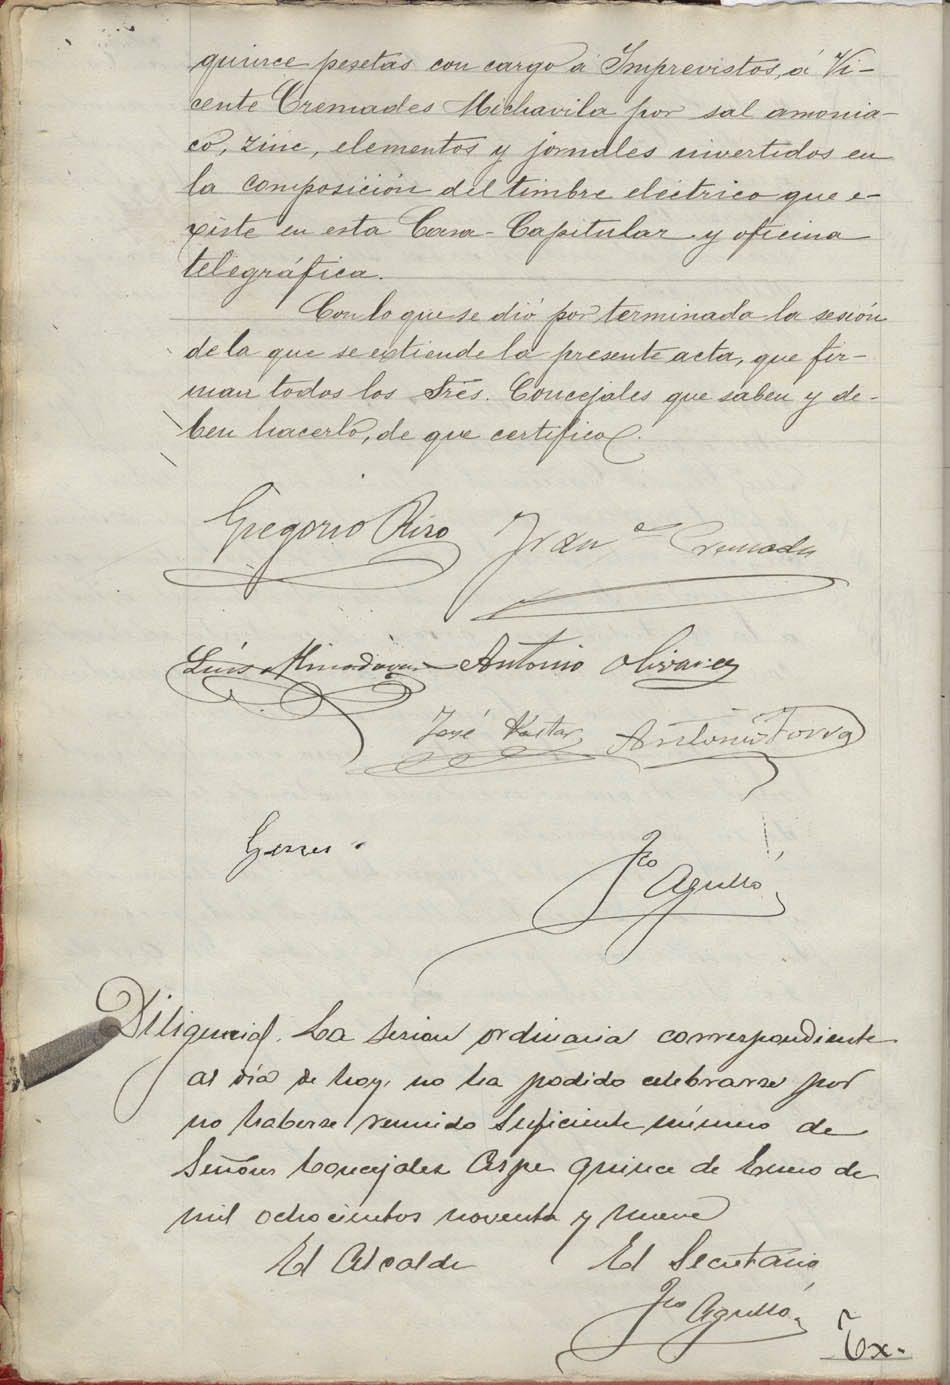 quince pesetas con cargo á Imprevistos, á Vi-
cente Cremades Michavila por sal amonia-
co, zinc, elementos y jornales invertidos en
la composición del timbre eléctrico que e-
xiste en esta Casa-Capitular y oficina
telegráfica.
Con lo que se dió por terminada la sesión
de la que se extiende la presente acta, que fir-
man todos los Srés. Concejales que saben y de-
ben hacerlo, de que certifico.
Gregorio Rizo Franco Cremades
Luis Antonio Olivares
José Pastor Antonio
Fco Agulló
Diligencia. La sesion ordinaria correspondiente
al día de hoy, no ha podido celebrarse por
no haberse reunido suficiente número de
Señores Concejales Aspe quince de Enero de
mil ochocientos noventa y nueve
El Alcalde El Secretario
Fco Agulló
Ex.